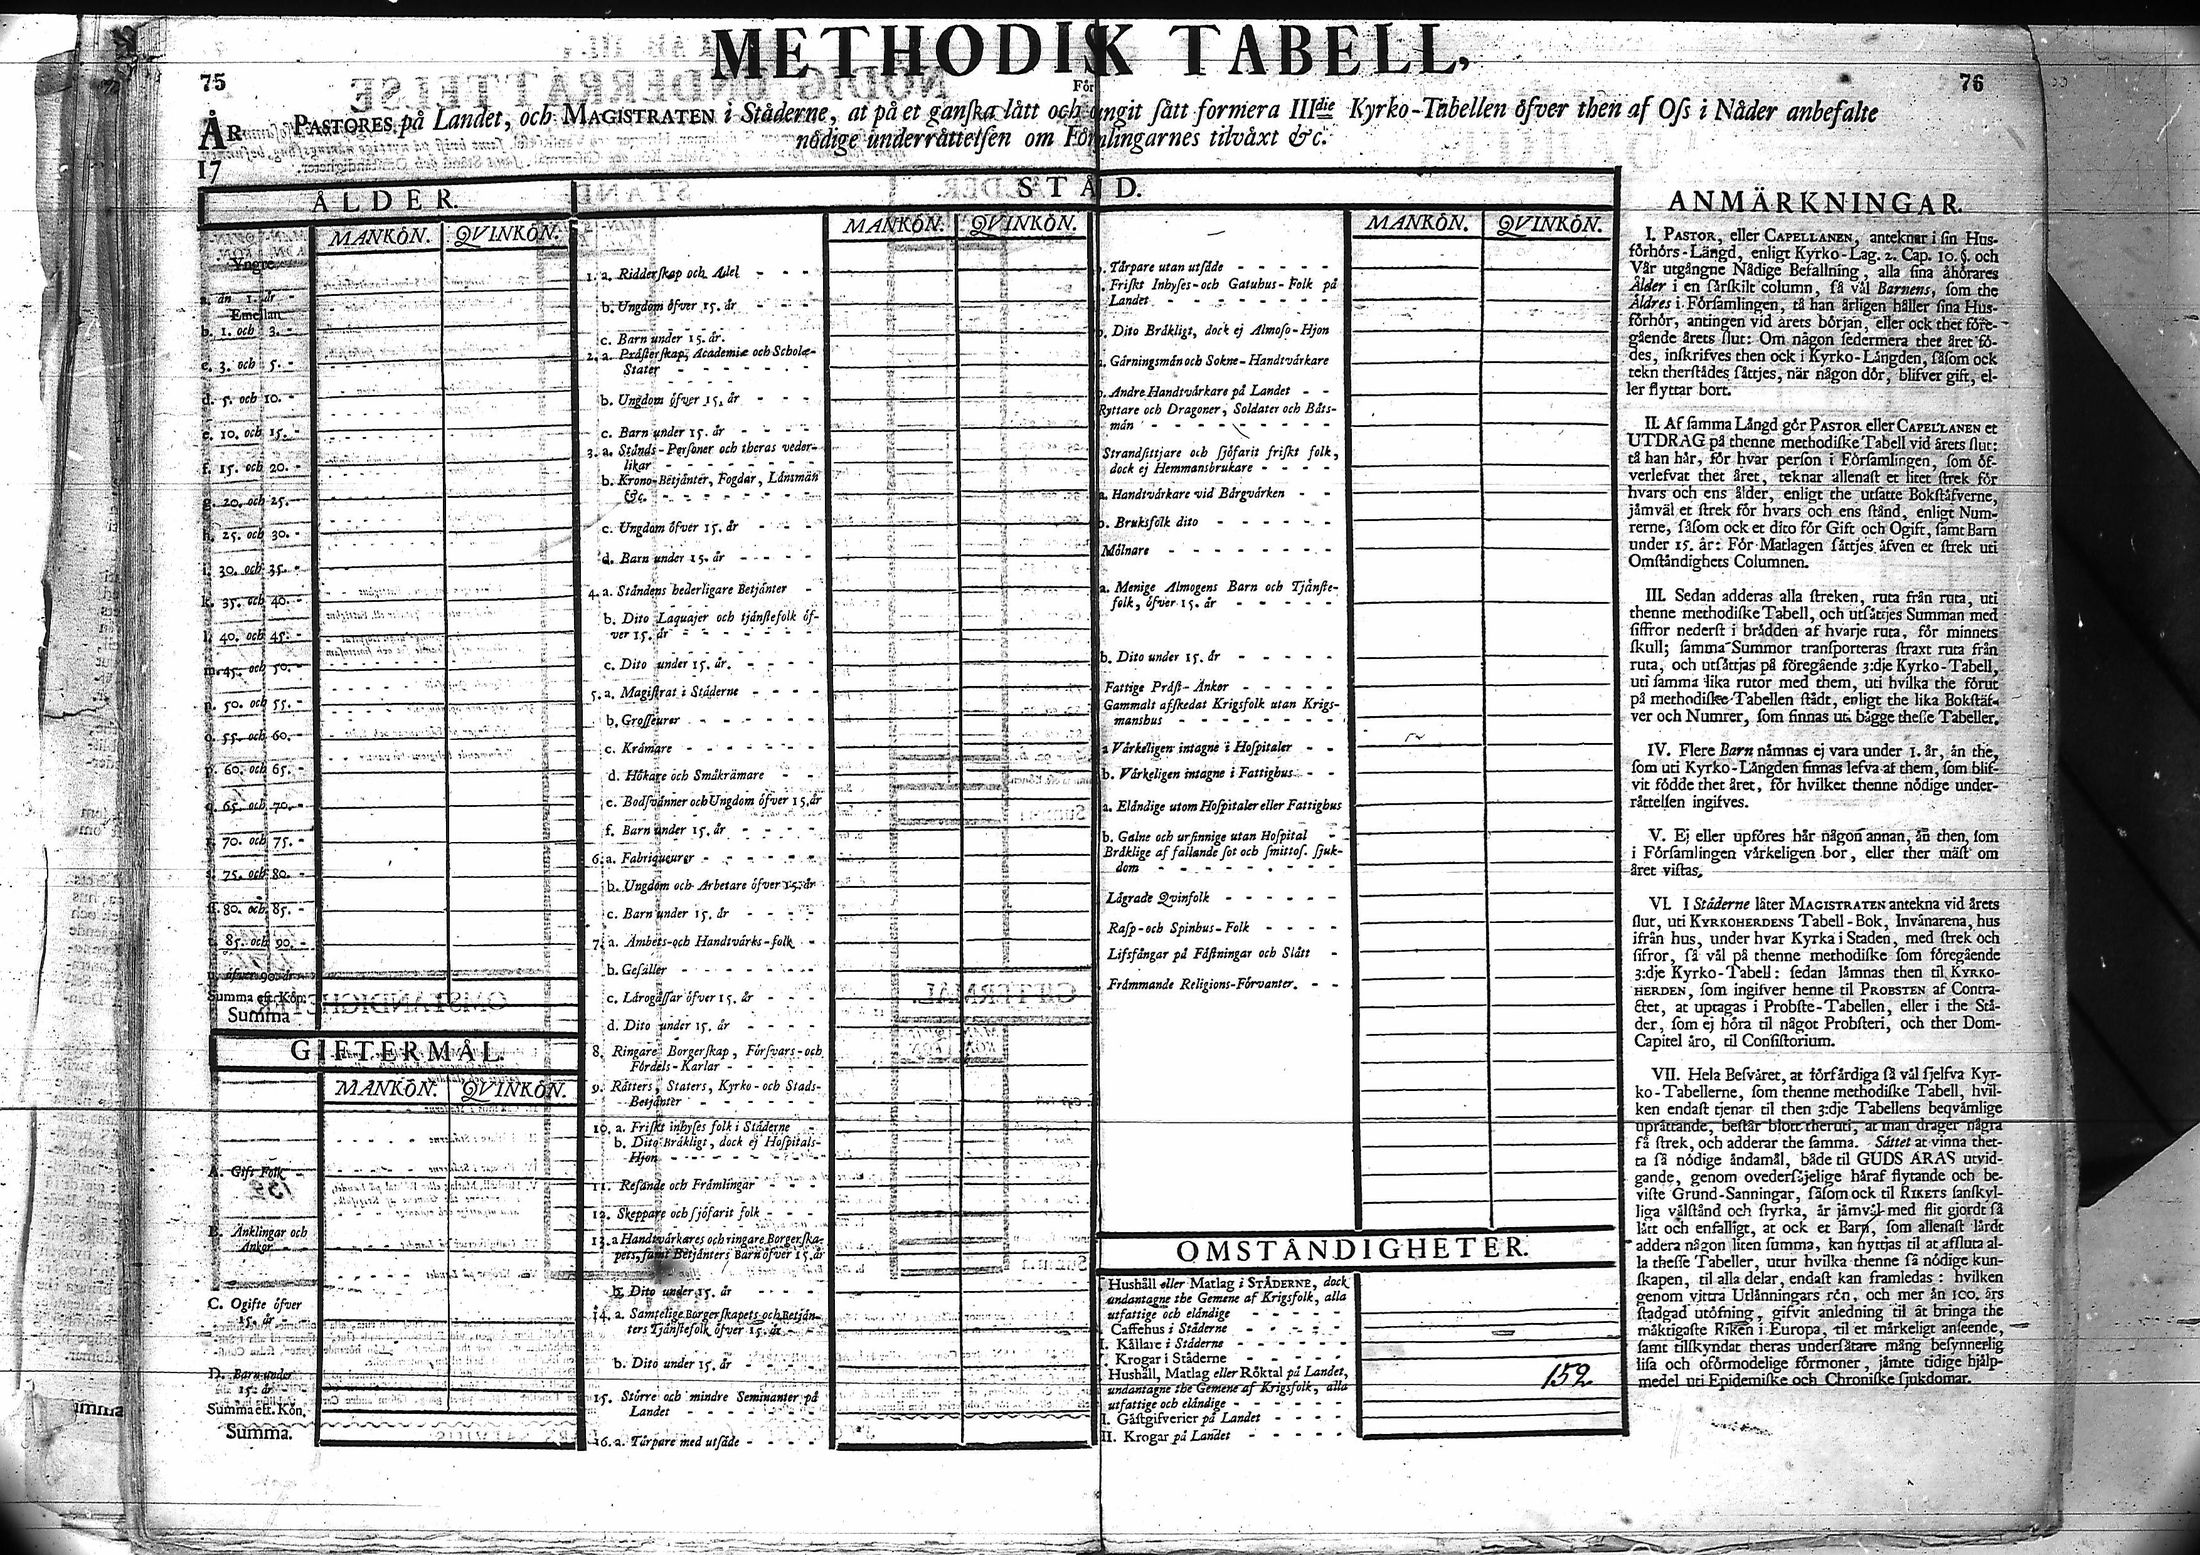 METHODISK TABELL,
75
För
76
PASTORES på Landet, och MAGISTRATEN i Städerne, at på et ganska lätt och ungit sätt formera IIIdie Kyrko-Tabellen öfver then af Oss i Nåder anbefalte
ÅR
nödige underrättelsen om Församlingarnes tilväxt &c.
17
ÅLDER.
MANKÖN. QVINKÖN.
Yngre
a. än 1. år -
Emellan
b. 1. och 3. -
c. 3. och 5. -
d. 5. och 10. -
e. 10. och 15. -
f. 15. och 20. -
g. 20. och 25. -
h. 25. och 30. -
i. 30. och 35. -
k. 35. och 40. -
l. 40. och 45. -
m. 45. och 50. -
n. 50. och 55. -
o. 55. och 60. -
p. 60. och 65. -
q. 65. och 70. -
r. 70. och 75. -
s. 75. och 80. -
ſſ. 80. och 85. -
t. 85. och 90. -
u. öfver 90. år -
Summa eft. Kön.
Summa
GIFTERMÅL.
MANKÖN. QVINKÖN.
A. Gift Folk -
B. Änklingar och
Änkor -
C. Ogifte öfver
15. år -
D. Barn under
15. år -
Summa eft. Kön.
Summa.
STÅD.
MANKÖN. QVINKÖN.
1. a. Ridderskap och Adel - - -
b. Ungdom öfver 15. år - - -
c. Barn under 15. år.
2. a. Prästerskap, Academiæ och Scholæ-
Stater - - - - - -
b. Ungdom öfver 15. år - - -
c. Barn under 15. år - - -
3. a. Stånds-Personer och theras veder-
likar - - - - - -
b. Krono-Betjänter, Fogdar, Länsmän
&c. - - - - - -
c. Ungdom öfver 15. år - - -
d. Barn under 15. år - - -
4. a. Ståndens hederligare Betjänter -
b. Dito Laquajer och tjänstefolk öf-
ver 15. år - - - - -
c. Dito under 15. år. - - - -
5. a. Magistrat i Städerne - - -
b. Grosseurer - - - - -
c. Krämare - - - - -
d. Hökare och Småkrämare - -
e. Bodsvänner och Ungdom öfver 15. år
f. Barn under 15. år - - - -
6. a. Fabriqueurer - - - - -
b. Ungdom och Arbetare öfver 15. år
c. Barn under 15. år - - - -
7. a. Ämbets-och Handtvärks-folk -
b. Gesäller - - - - - -
c. Lärogåssar öfver 15. år - - -
d. Dito under 15. år - - - -
8. Ringare Borgerskap, Försvars-och
Fördels-Karlar - - - - -
9. Rätters, Staters, Kyrko-och Stads-
Betjänter - - - - - -
10. a. Friskt inhyses folk i Städerne -
b. Dito Bräkligt, dock ej Hospitals-
Hjon - - - - - -
11. Resande och Främlingar - - -
12. Skeppare och sjöfarit folk - - -
13. a Handtvärkares och ringare Borgerska-
pets, samt Betjänters Barn öfver 15. år
b. Dito under 15. år - - - -
14. a. Samtelige Borgerskapets och Betjän-
ters Tjänstefolk öfver 15. år - -
b. Dito under 15. år - - - -
15. Större och mindre Seminanter på
Landet - - - - - -
16. a. Tårpare med utsäde - - - -
MANKÖN. QVINKÖN.
b. Tårpare utan utsäde - - - - -
Friskt Inhyses-och Gatuhus-Folk på
Landet - - - - - - -
b. Dito Bräkligt, dock ej Almoso-Hjon
a. Gärningsmän och Sokne-Handtvärkare
b. Andre Handtvärkare på Landet - -
Ryttare och Dragoner, Soldater och Båts-
män - - - - - - -
Strandsittjare och sjöfarit friskt folk,
dock ej Hemmansbrukare - - - -
a. Handtvärkare vid Bärgvärken - -
b. Bruksfolk dito - - - - - -
Mölnare - - - - - - -
a. Menige Almogens Barn och Tjänste-
folk, öfver 15. år - - - - -
b. Dito under 15. år - - - - -
Fattige Präst-Änkor - - - - -
Gammalt afskedat Krigsfolk utan Krigs-
manshus - - - - - - -
a Värkeligen intagne i Hospitaler - -
b. Värkeligen intagne i Fattighus - -
a. Eländige utom Hospitaler eller Fattighus
b. Galne och ursinnige utan Hospital -
Bräklige af fallande sot och smittos. sjuk-
dom - - - - - - -
Lägrade Qvinfolk - - - - -
Rasp-och Spinhus-Folk - - - -
Lifsfångar på Fästningar och Slätt -
Främmande Religions-Förvanter. - -
OMSTÄNDIGHETER.
Hushåll eller Matlag i STÄDERNE, dock
undantagne the Gemene af Krigsfolk, alla
utfattige och eländige - - - - -
Caffehus i Städerne - - - - -
Källare i Städerne - - - - -
Krogar i Städerne - - - - -
Hushåll, Matlag eller Röktal på Landet,
undantagne the Gemene af Krigsfolk, alla
utfattige och eländige - - - - -
152
I. Gästgifverier på Landet - - - -
II. Krogar på Landet - - - - -
ANMÄRKNINGAR.
I. PASTOR, eller CAPELLANEN, anteknar i sin Hus-
förhörs-Längd, enligt Kyrko-Lag. 2. Cap. 10. §. och
Vår utgångne Nådige Befallning, alla sina åhörares
Ålder i en särskilt column, så väl Barnens, som the
Äldres i Församlingen, tå han årligen håller sina Hus-
förhör, antingen vid årets början, eller ock thet före-
gående årets slut: Om någon sedermera thet året fö-
des, inskrifves then ock i Kyrko-Längden, såsom ock
tekn therstädes sättjes, när någon dör, blifver gift, el-
ler flyttar bort.
II. Af samma Längd gör PASTOR eller CAPELLANEN et
UTDRAG på thenne methodiske Tabell vid årets slut:
tå han här, för hvar person i Församlingen, som öf-
verlefvat thet året, teknar allenast et litet strek för
hvars och ens ålder, enligt the utsatte Bokstäfverne,
jämväl et strek för hvars och ens stånd, enligt Num-
rerne, såsom ock et dito för Gift och Ogift, samt Barn
under 15. år: För Matlagen sättjes äfven et strek uti
Omständighets Columnen.
III. Sedan adderas alla streken, ruta från ruta, uti
thenne methodiske Tabell, och utsättjes Summan med
siffror nederst i brädden af hvarje ruta, för minnets
skull; samma Summor transporteras straxt ruta från
ruta, och utsättjas på föregående 3:dje Kyrko-Tabell,
uti samma lika rutor med them, uti hvilka the förut
på methodiske Tabellen städt, enligt the lika Bokstäf-
ver och Numrer, som finnas uti bägge thesse Tabeller.
IV. Flere Barn nämnas ej vara under 1. år, än the,
som uti Kyrko-Längden finnas lefva af them, som blif-
vit födde thet året, för hvilket thenne nödige under-
rättelsen ingifves.
V. Ej eller upföres här någon annan, än then, som
i Församlingen värkeligen bor, eller ther mäst om
året vistas.
VI. I Städerne låter MAGISTRATEN antekna vid årets
slut, uti KYRKOHERDENS Tabell-Bok, Invånarena, hus
ifrån hus, under hvar Kyrka i Staden, med strek och
sifror, så väl på thenne methodiske som föregående
3:dje Kyrko-Tabell: sedan lämnas then til KYRKO-
HERDEN, som ingifver henne til PROBSTEN af Contra-
ctet, at uptagas i Probste-Tabellen, eller i the Stä-
der, som ej höra til något Probsteri, och ther Dom-
Capitel äro, til Consistorium.
VII. Hela Besväret, at förfärdiga så väl sjelfva Kyr-
ko-Tabellerne, som thenne methodiske Tabell, hvil-
ken endast tjenar til then 3:dje Tabellens beqvämlige
uprättande, består blott theruti, at man drager några
få strek, och adderar the samma. Sättet at vinna thet-
ta så nödige ändamål, både til GUDS ÄRAS utvid-
gande, genom ovedersäjelige häraf flytande och be-
viste Grund-Sanningar, såsom ock til RIKETS sanskyl-
liga välstånd och styrka, är jämväl med flit gjordt så
lätt och enfalligt, at ock et Barn, som allenast lärdt
addera någon liten summa, kan nyttjas til at afsluta al-
la thesse Tabeller, utur hvilka thenne så nödige kun-
skapen, til alla delar, endast kan framledas: hvilken
genom vittra Utlänningars rön, och mer än 100. års
stadgad utöfning, gifvit anledning til at bringa the
mäktigaste Riken i Europa, til et märkeligt anseende,
samt tilskyndat theras undersåtare mång besynnerlig
lisa och oförmodelige förmoner, jämte tidige hjälp-
medel uti Epidemiske och Chroniske sjukdomar.